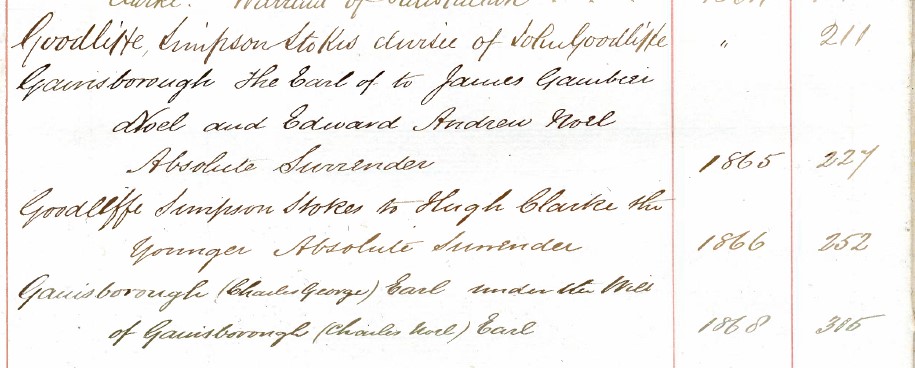 Clarke. Warrant of Satisfaction
Goodliffe, Simpson Stokes, devisee of John Goodliffe " 211
Gainsborough The Earl of to James Gambier
Noel and Edward Andrew Noel
Absolute Surrender 1865 227
Goodliffe Simpson Stokes to Hugh Clarke the
Younger Absolute Surrender 1866 252
Gainsborough (Charles George) Earl under the Will
of Gainsborough (Charles Noel) Earl 1868 305